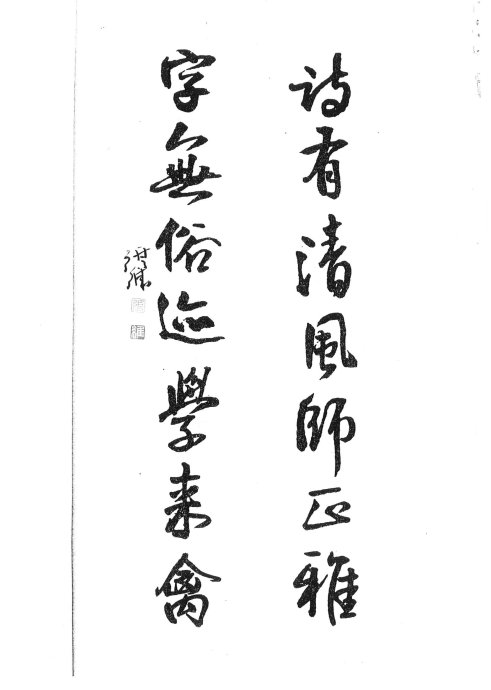 詩有清風師正雅
字無俗迹學来禽